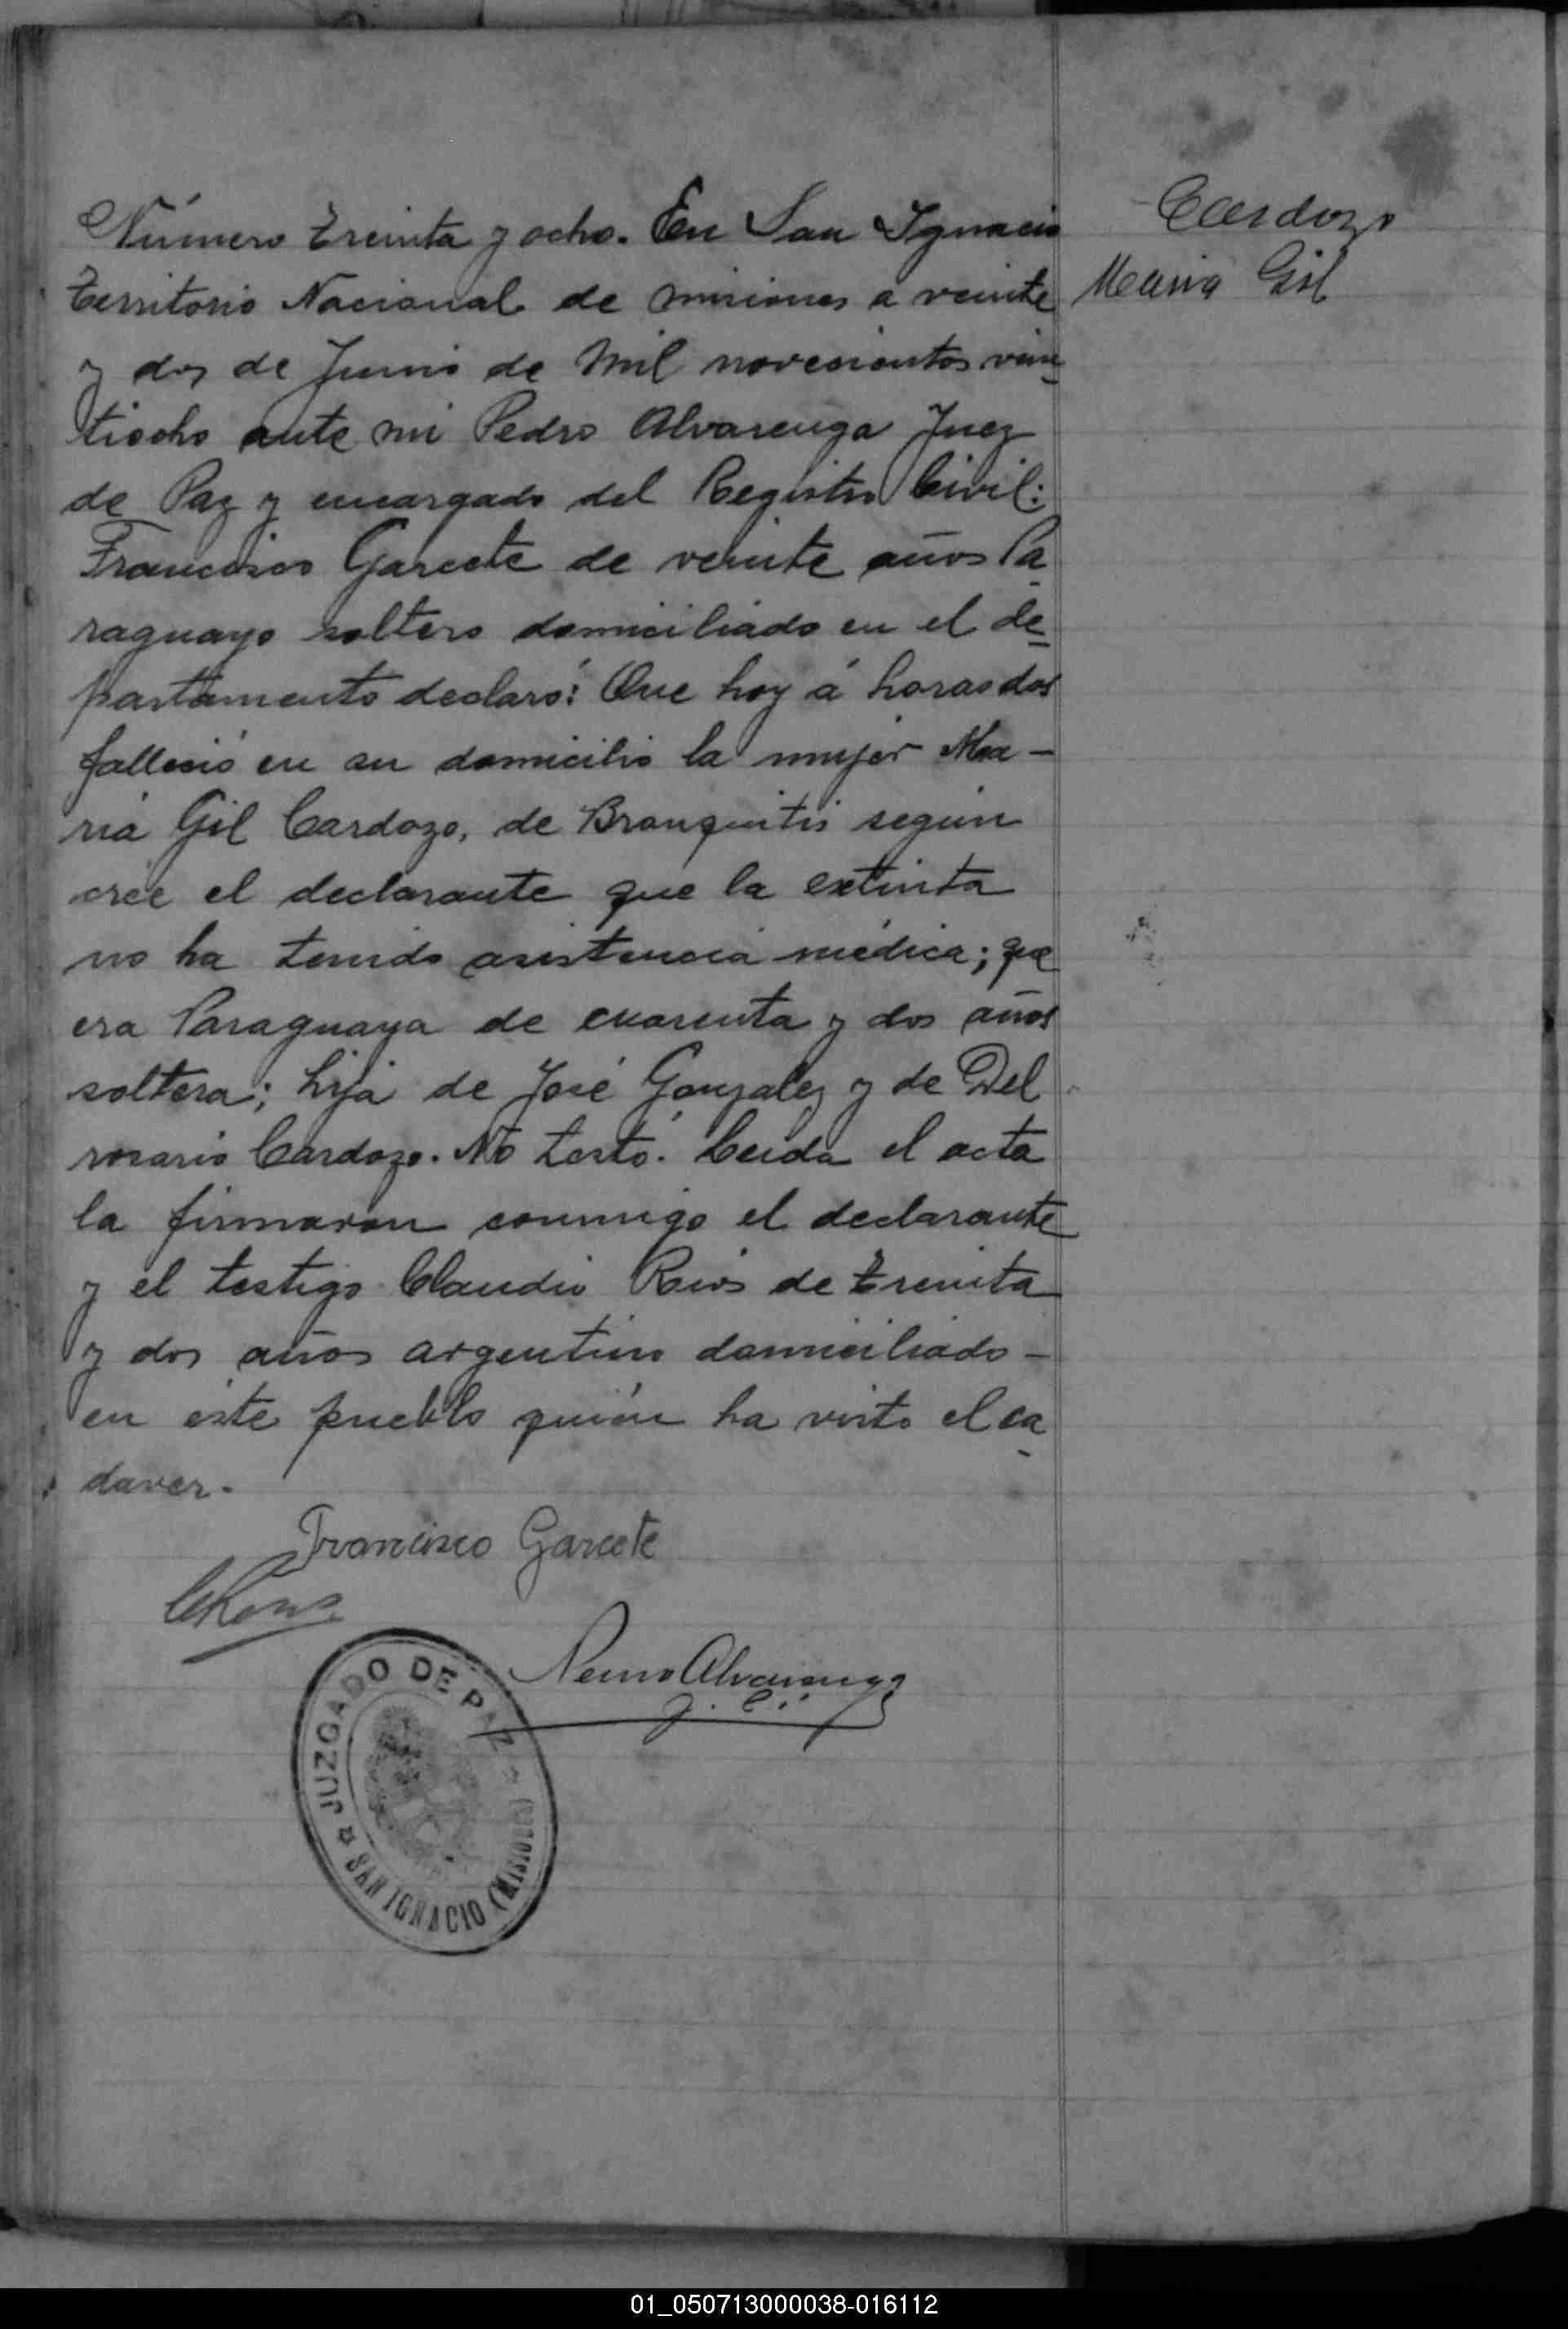 Número treinta y ocho. En San Ygnacio
territorio Nacional de misiones a veinte
y dos de Junio de Mil novecientos vein-
tiocho ante mi Pedro Alvarenga Juez
de Paz y encargado del Registro Civil:
Francisco Garcete de veinte años Pa-
raguayo soltero domiciliado en el de-
partamento declaró: Que hoy á horas dos
falleció en su domicilio la mujer Ma-
ria Gil Cardozo, de Bronquitis según
cree el declarante que la extinta
no ha tenido asistencia médica; que
era Paraguaya de cuarenta y dos años
soltera; hija de José Gonzalez y de Del
rosario Cardozo. No testó. Leida el acta
la firmaron conmigo el declarante
y el testigo Claudio Rios de treinta
y dos años argentino domiciliado -
en éste pueblo quién ha visto el ca-
daver.
Francisco Garcete
Alvarenga
JUZGADO DE PAZ
SAN IGNACIO (MISIONES)
Cardozo
Maria Gil
01_050713000038-016112